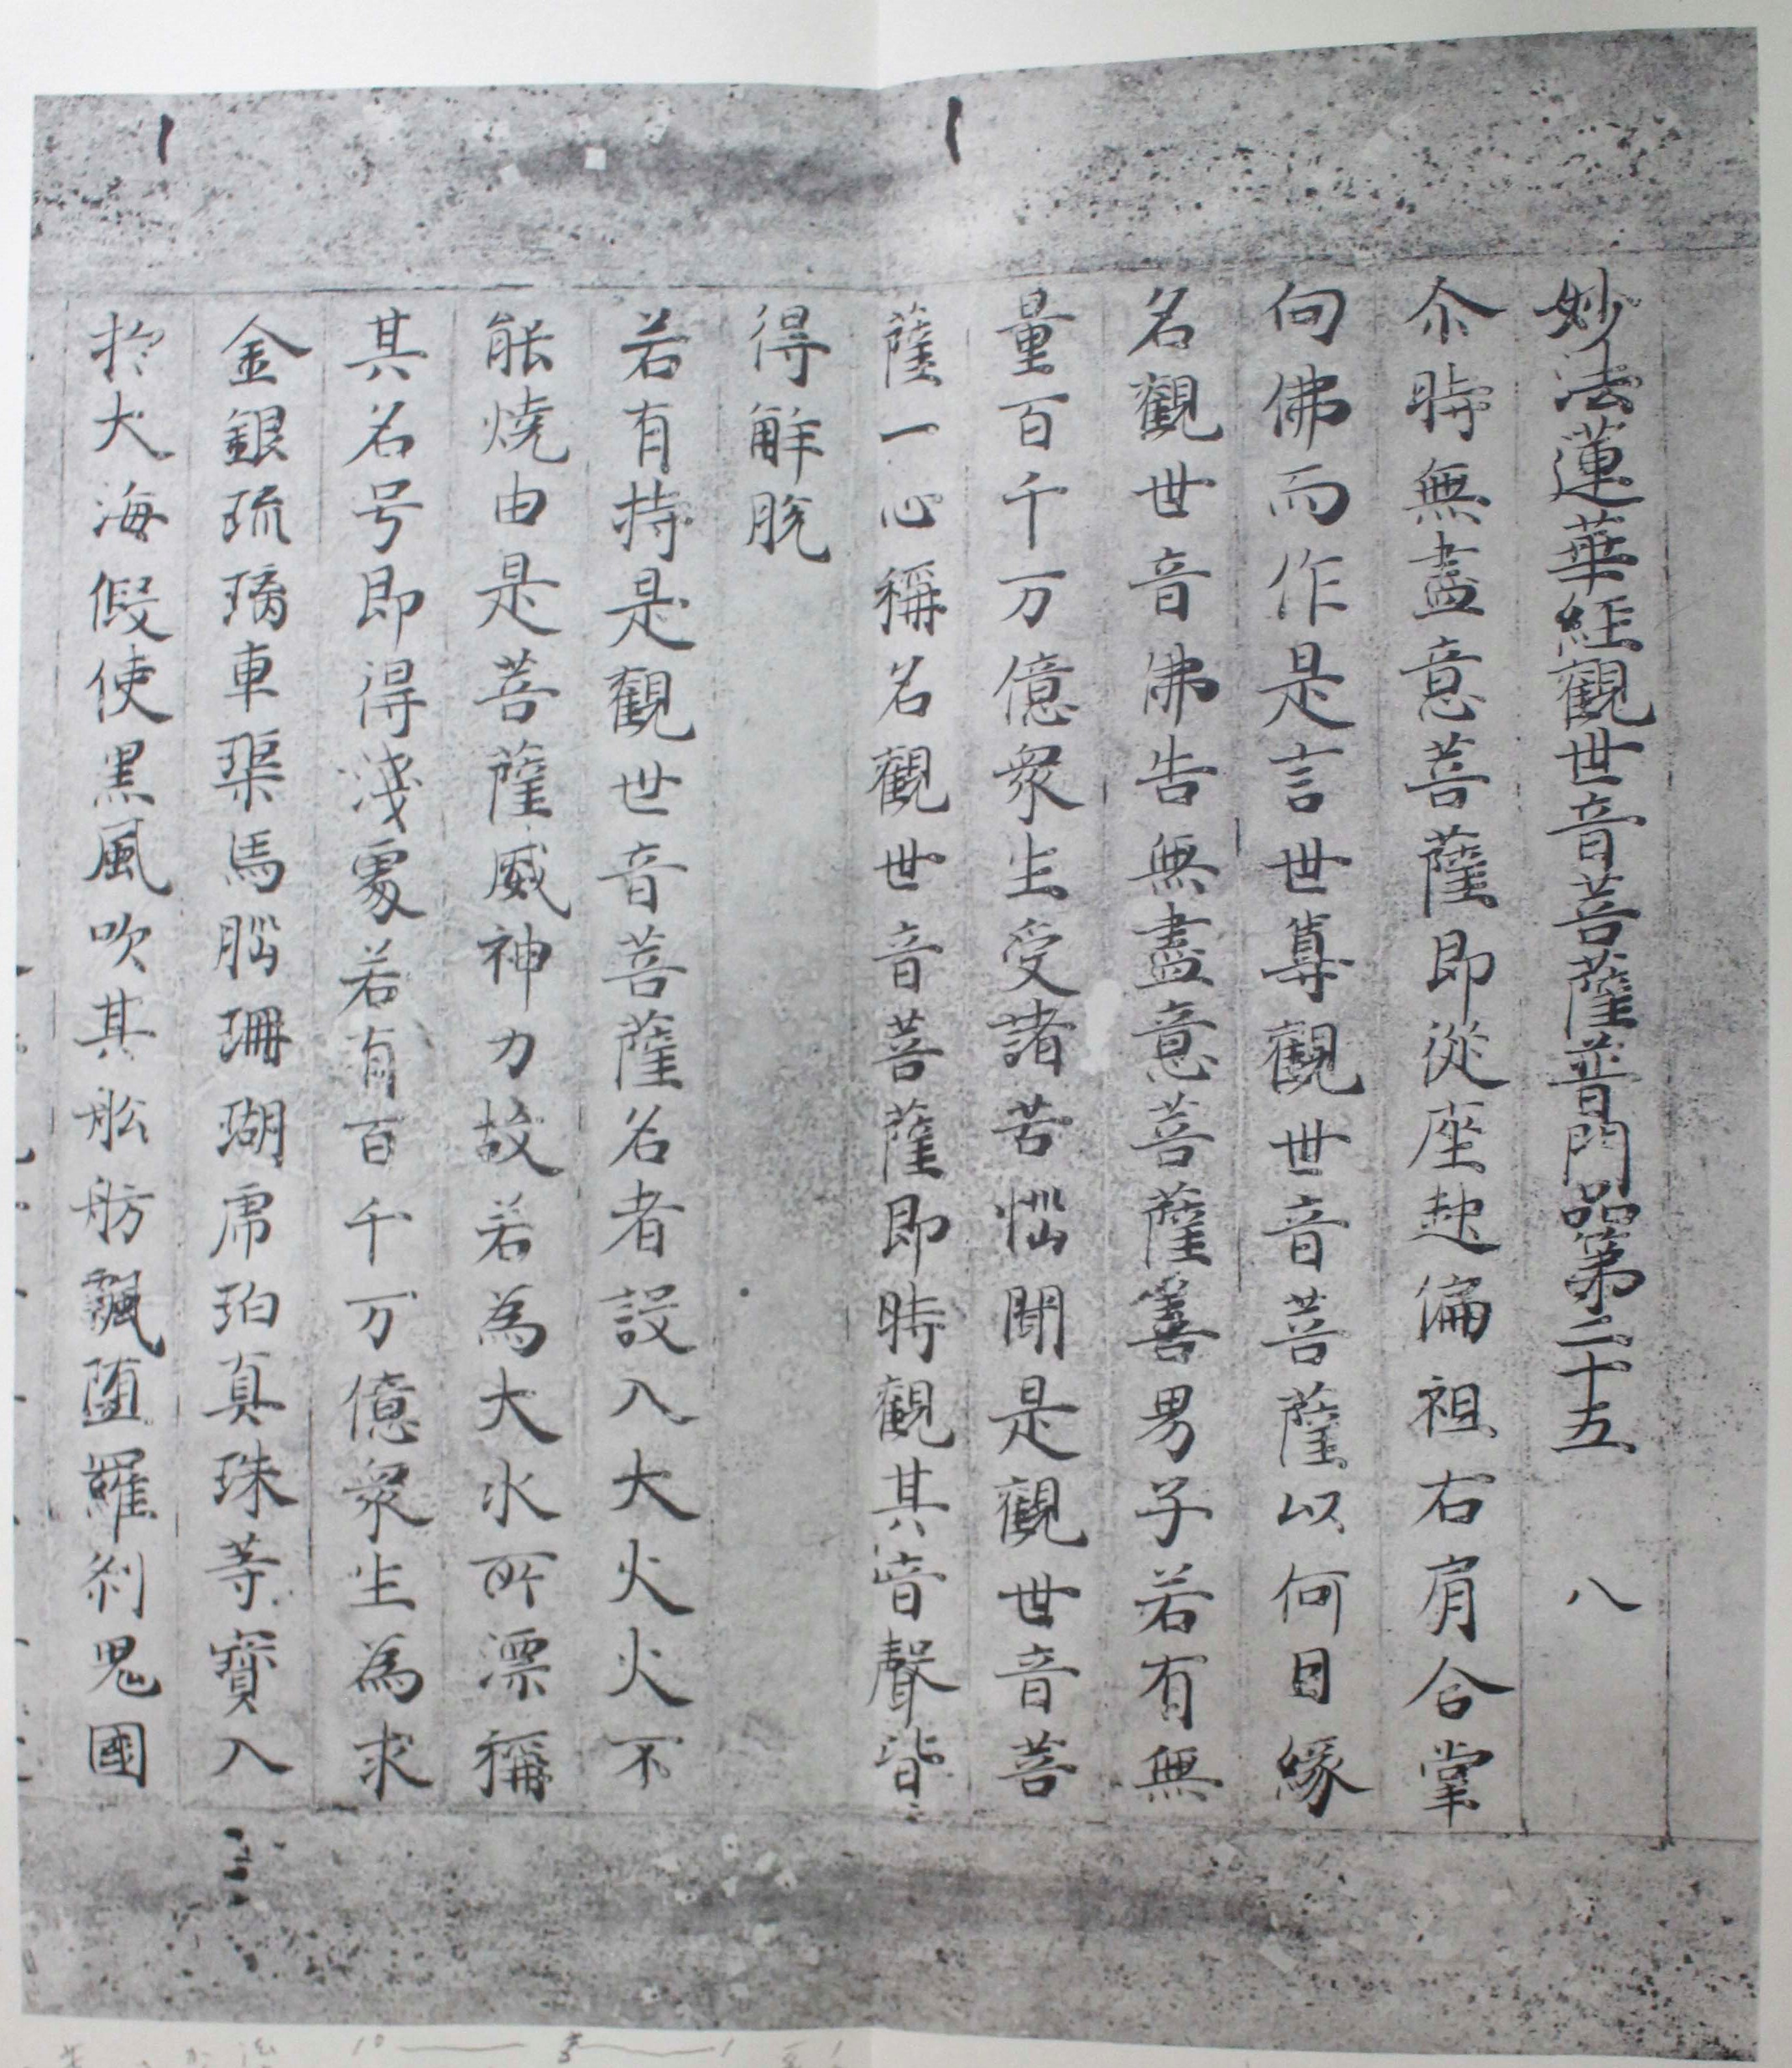 妙法蓮華経觀世音菩薩普門品第二十五 八
尒時無盡意菩薩即從座起偏袒右肩合掌
向佛而作是言世尊觀世音菩薩以何因緣
名觀世音佛告無盡意菩薩善男子若有無
量百千万億衆生受諸苦惱聞是觀世音菩
薩一心稱名觀世音菩薩即時觀其音聲皆
得解脱
若有持是觀世音菩薩名者設入大火火不
能燒由是菩薩威神力故若為大水所漂稱
其名号即得淺處若有百千万億衆生為求
金銀琉璃車𤦲馬腦珊瑚虎珀真珠等寶入
於大海假使黒風吹其舩舫飄堕羅刹鬼國